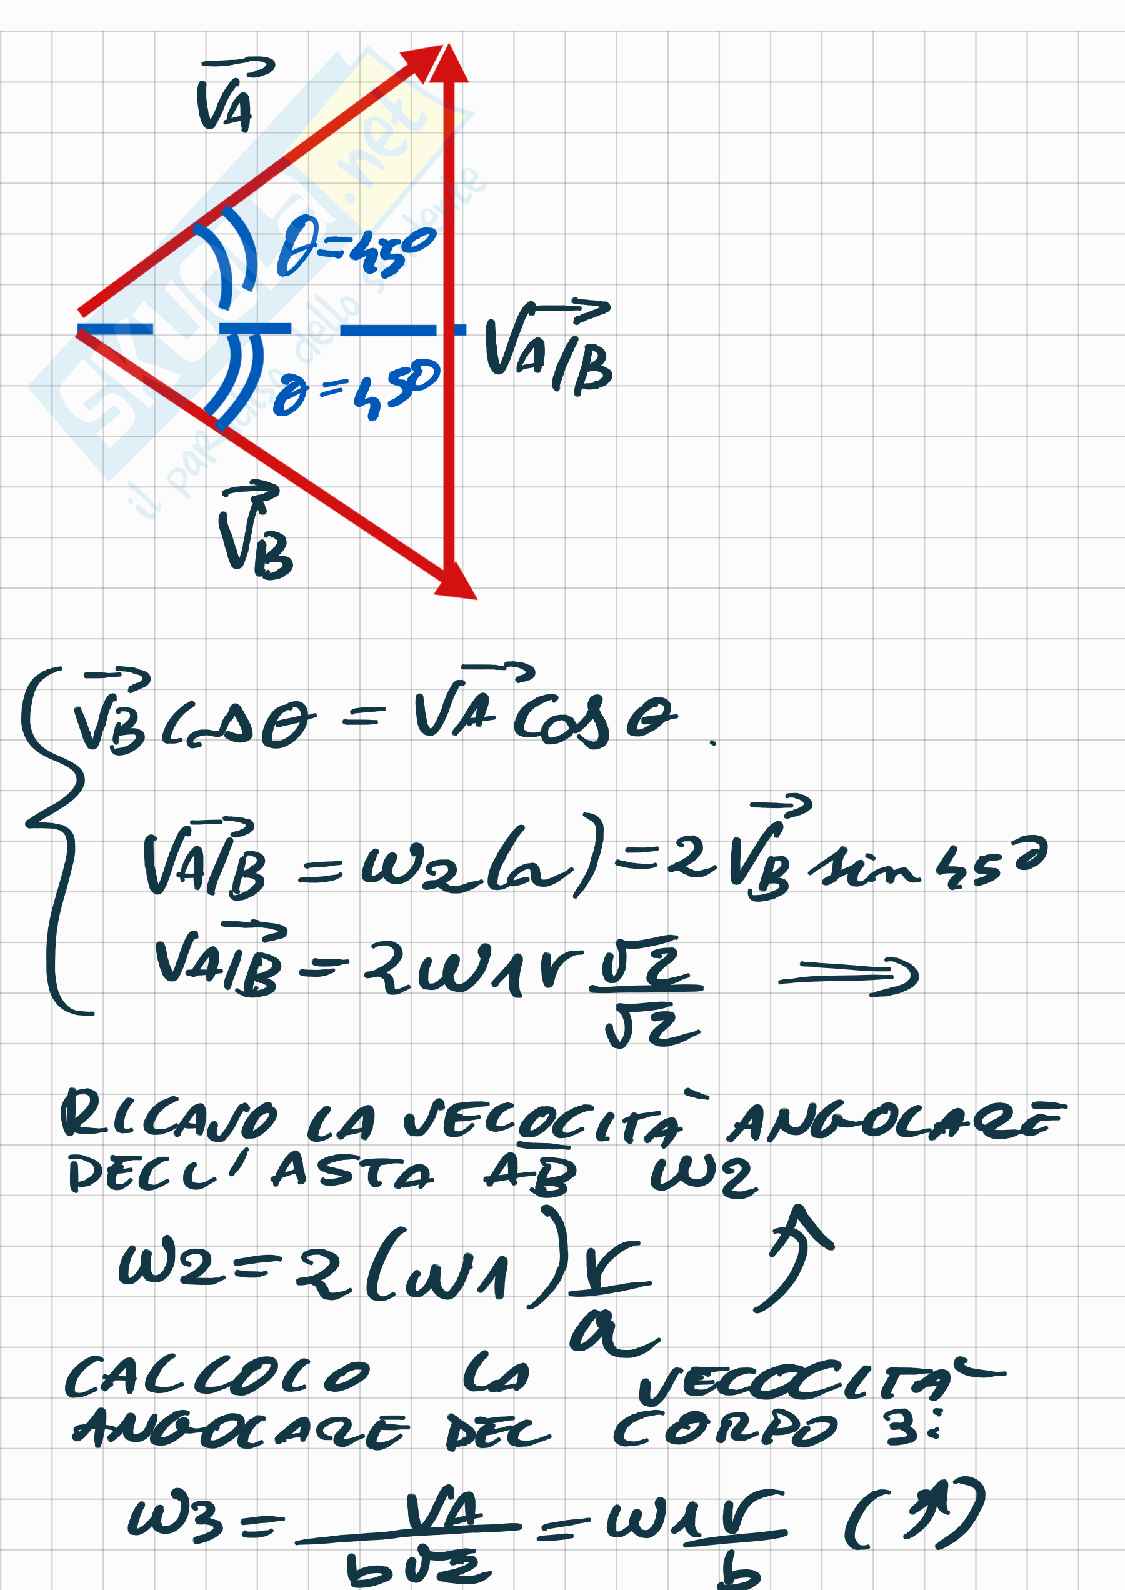 VA
θ=45°
VA/B
θ=45°
VB
SKUOLA.net
il paradiso dello studente
VB cosθ = VA cosθ .
VA/B = ω2(a) = 2 VB sin 45°
VA/B = 2ω1r √2/√2 ⟹
RICAVO LA VELOCITÀ ANGOLARE
DELL' ASTA AB ω2
ω2 = 2(ω1) r/a
CALCOLO LA VELOCITÀ
ANGOLARE DEL CORPO 3:
ω3 = VA/b√2 = ω1 r/b (↗)